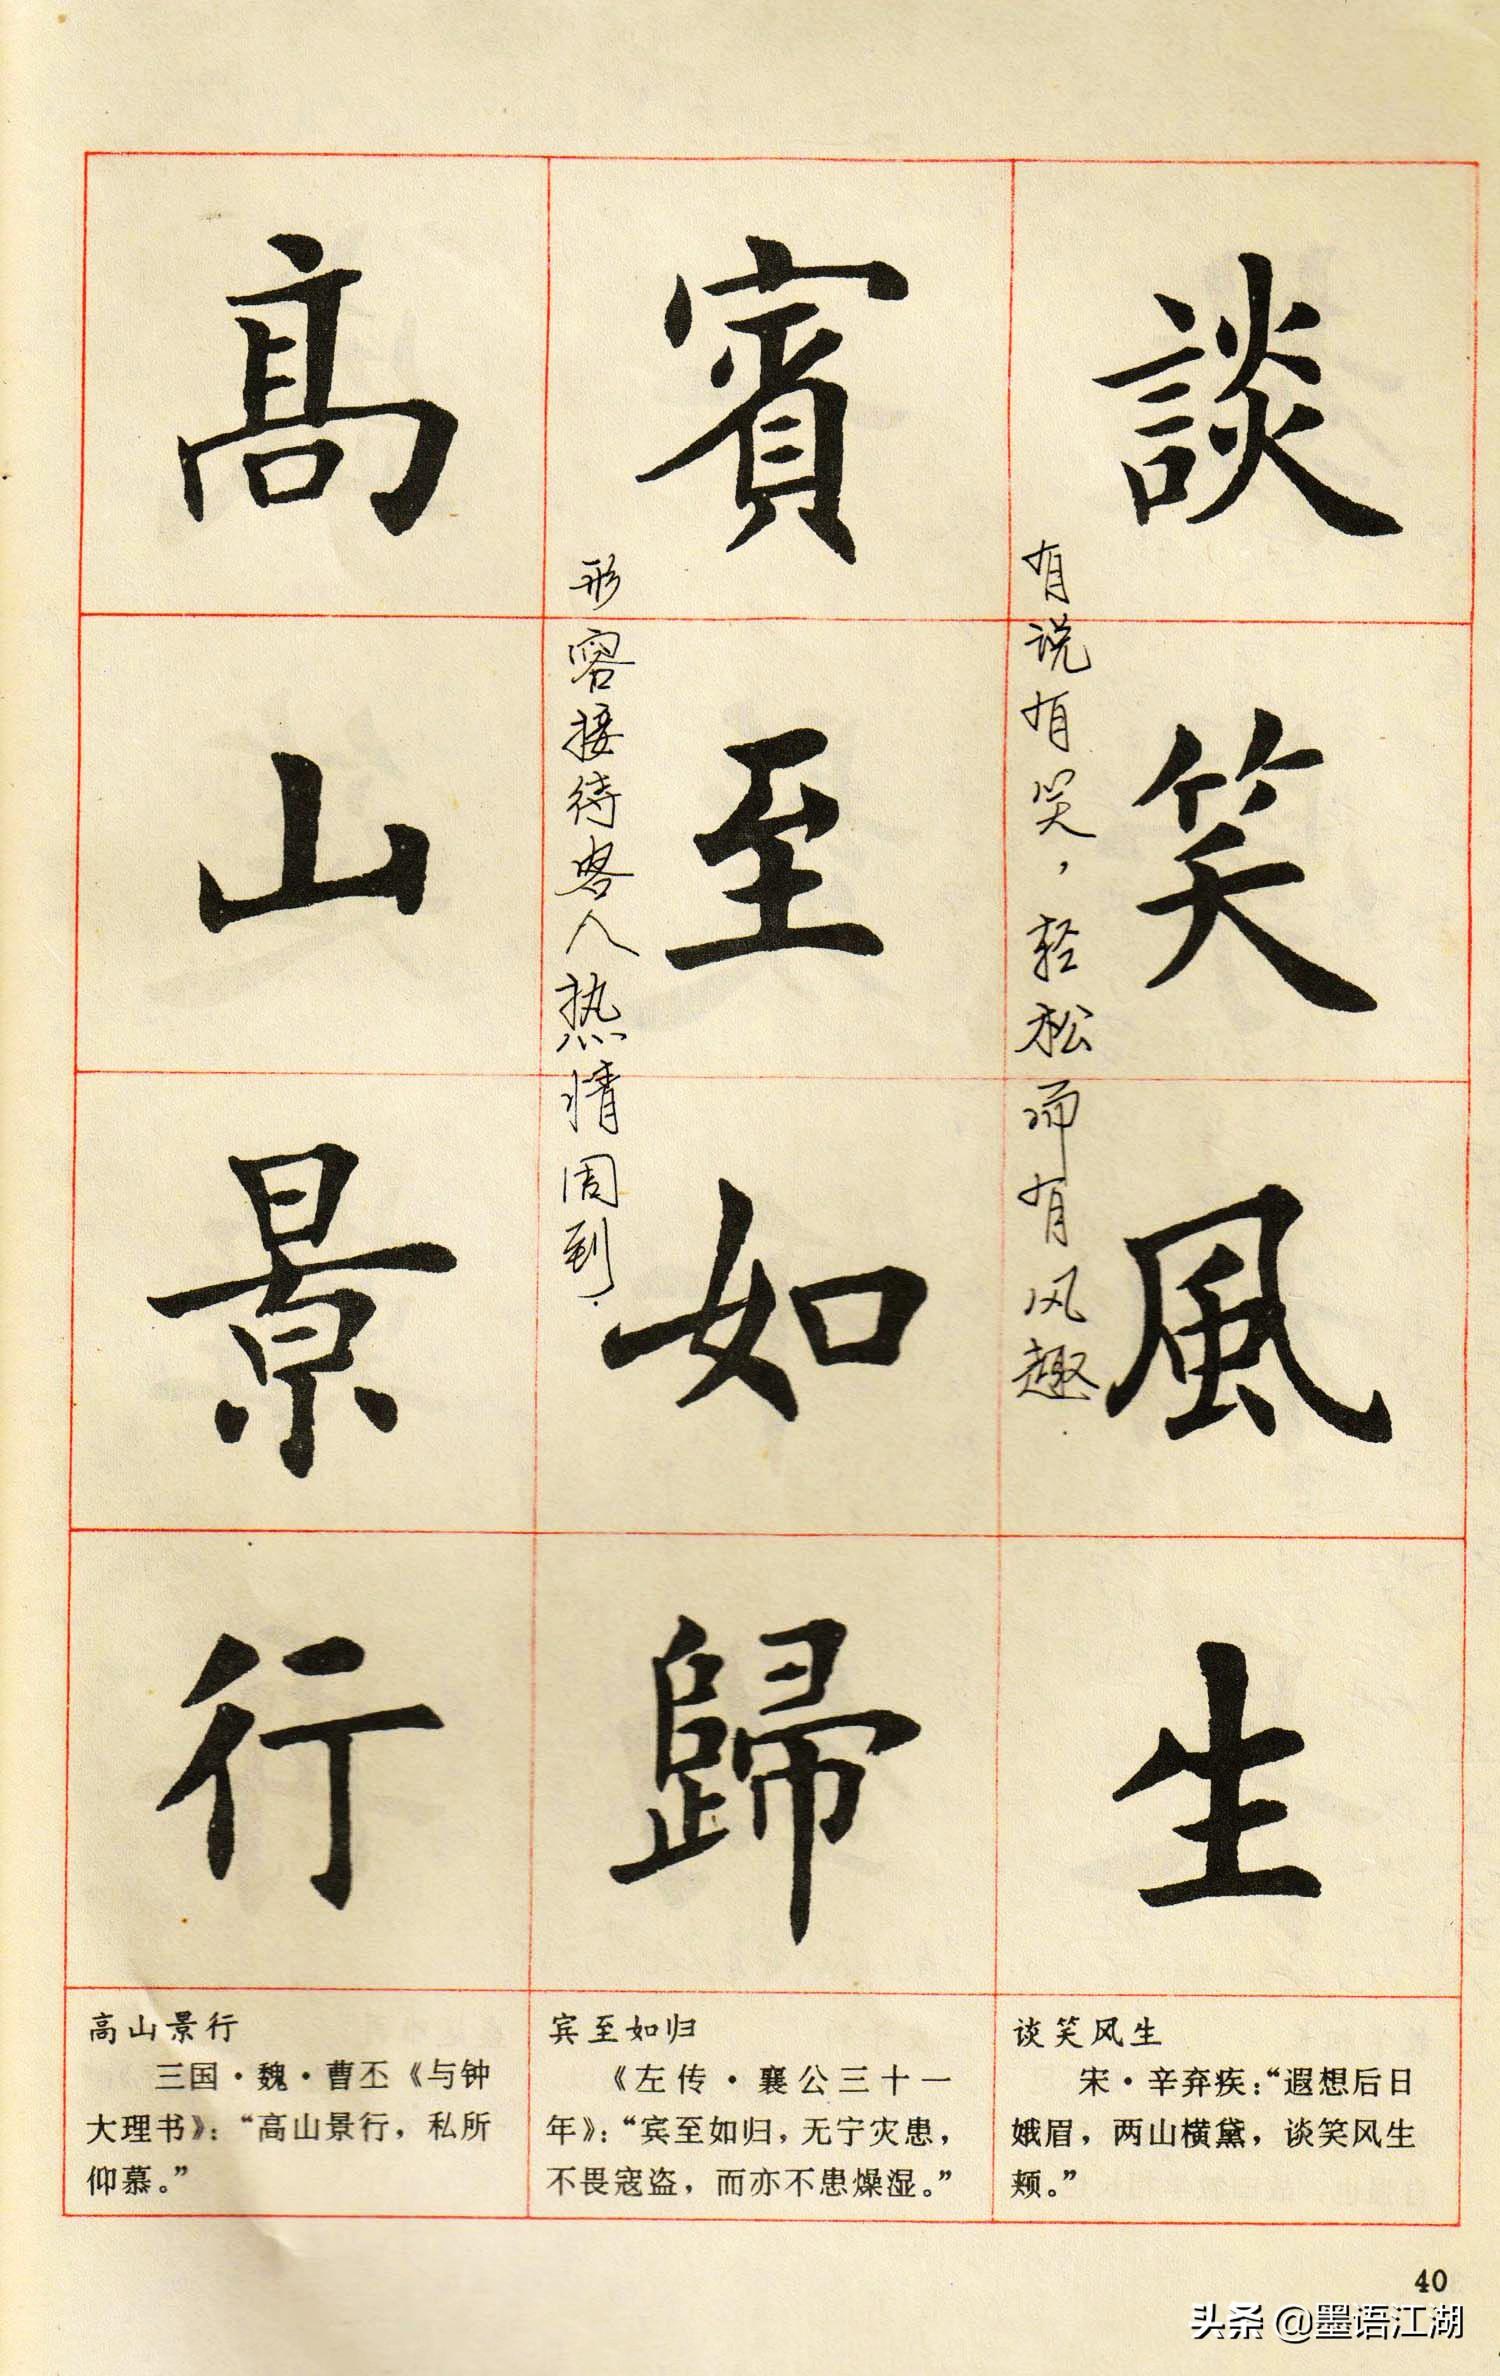 談笑風生
有说有笑，轻松而有风趣.
賓至如歸
形容接待客人热情周到.
高山景行
谈笑风生
宋·辛弃疾：“遐想后日
娥眉，两山横黛，谈笑风生
颊。”
宾至如归
《左传·襄公三十一
年》：“宾至如归，无宁灾患，
不畏寇盗，而亦不患燥湿。”
高山景行
三国·魏·曹丕《与钟
大理书》：“高山景行，私所
仰慕。”
40
头条@墨语江湖